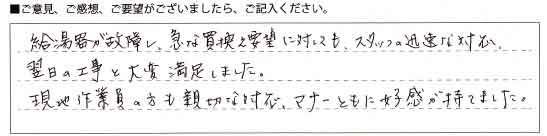 ■ご意見、ご感想、ご要望がございましたら、ご記入ください。
給湯器が故障し、急な買換え要望に対しても、スタッフの迅速な対応、
翌日の工事と大変満足しました。
現地作業員の方も親切な対応、マナーともに好感が持てました。